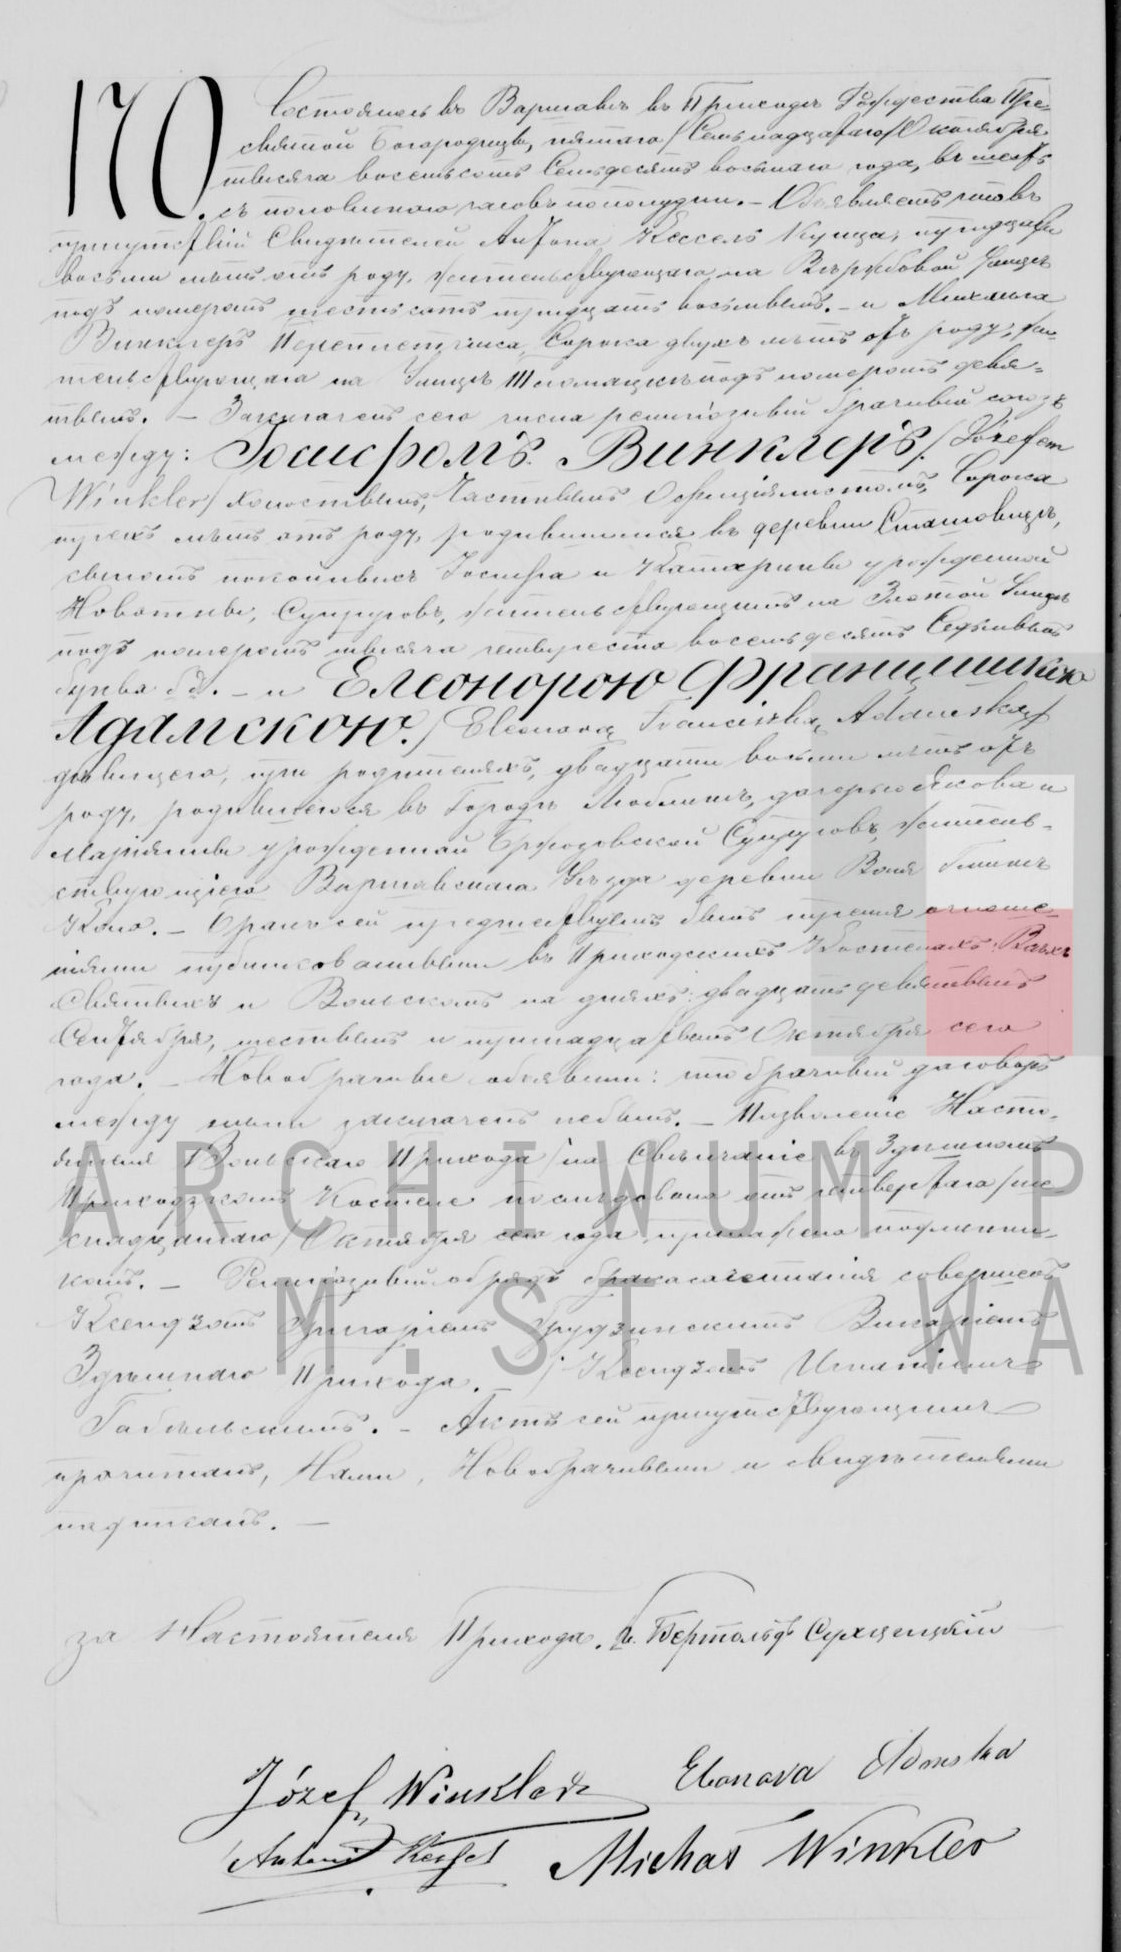 170. Состоялось въ Варшавѣ въ Приходѣ Рождества Пре-
святой Богородицы, пятаго/Семьнадцатаго/Октября
тысяча восемьсотъ Семьдесятъ восьмаго года, въ
съ половиною часовъ пополудни. – Объявляемъ что въ
присутствіи Свидѣтелей Антона Кессель Купца, тридцати
восьми лѣтъ отъ роду, жительствующаго на Вержбовой Улицѣ
подъ номеромъ шестьсотъ тридцать восьмымъ. – и Михаила
Винклеръ Переплетчика, Сорока двухъ лѣтъ отъ роду, жи-
тельствующаго на Улицѣ Тломацкѣ подъ номеромъ девя-
тымъ. – Заключенъ сего числа религіозный брачный союзъ
между: Іосифомъ Винклеръ /Józefem
Winkler/ холостымъ, Частнымъ Оффиціялистомъ, Сорока
трехъ лѣтъ отъ роду, родившимся въ деревни
сыномъ покойныхъ Іосифа и Катаржины урожденной
Новотны, Супруговъ, жительствующимъ на Злотой Улицѣ
подъ номеромъ тысяча четыреста восемьдесятъ Седьмымъ
буква – и Елеонорою Францишкою
Адамскою. /Eleonorą Franciszką Adamską/
дѣвицею, при родителяхъ, двадцати восьми лѣтъ отъ
роду, родившеюся въ Городѣ Люблинѣ, дочерью Якова и
Маріянны урожденной Бржозовской Супруговъ, житель-
ствующею Варшавскаго Уѣзда деревни Воля Гминѣ
Коло. – Бракъ сей предшествуемъ былъ тремя оглаше-
ніями публикованными въ Приходскихъ Костелахъ: Всѣхъ
Святыхъ и Вольскомъ на дняхъ: двадцать девятымъ
Сентября, шестымъ и тринадцатымъ Октября сего
года. – Новобрачные объявили: что брачный договоръ
между ними заключенъ небылъ. – Позволеніе Насто-
ятеля Вольскаго Прихода на Свѣнчаніе въ Здѣшномъ
Приходскомъ Костеле послѣдовало отъ четвертаго/ше-
снадцатаго/Октября сего года
– Религіозный обрядъ бракосочетанія совершенъ
Ксендзомъ Григоріемъ Грудзинскимъ Викаріемъ
Здѣшнаго Прихода. – / Ксендзомъ Игнатіемъ
– Актъ сей присутствующимъ
прочитанъ, Нами, Новобрачными и свидѣтелями
подписанъ. –
за Настоятеля Прихода.
Józef Winkler Elonora Adamska
Antoni Kessel Michał Winkler
ARCHIWUM P
M.ST. WA